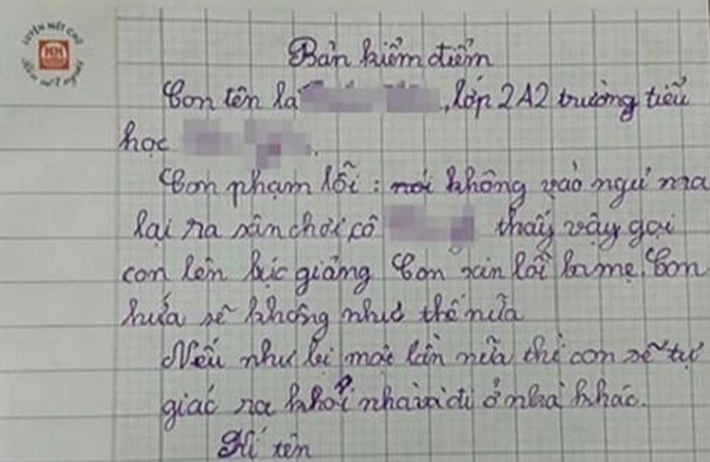 LUYỆN NÉT CHỮ
Bản kiểm điểm
Con tên là , lớp 2A2 trường tiểu
học .
Con phạm lỗi : nói không vào ngủ mà
lại ra sân chơi, cô thấy vậy gọi
con lên bục giảng Con xin lỗi ba mẹ. Con
hứa sẽ không như thế nữa
Nếu như bị một lần nữa thì con sẽ tự
giác ra khỏi nhà và đi ở nhà khác.
Kí tên